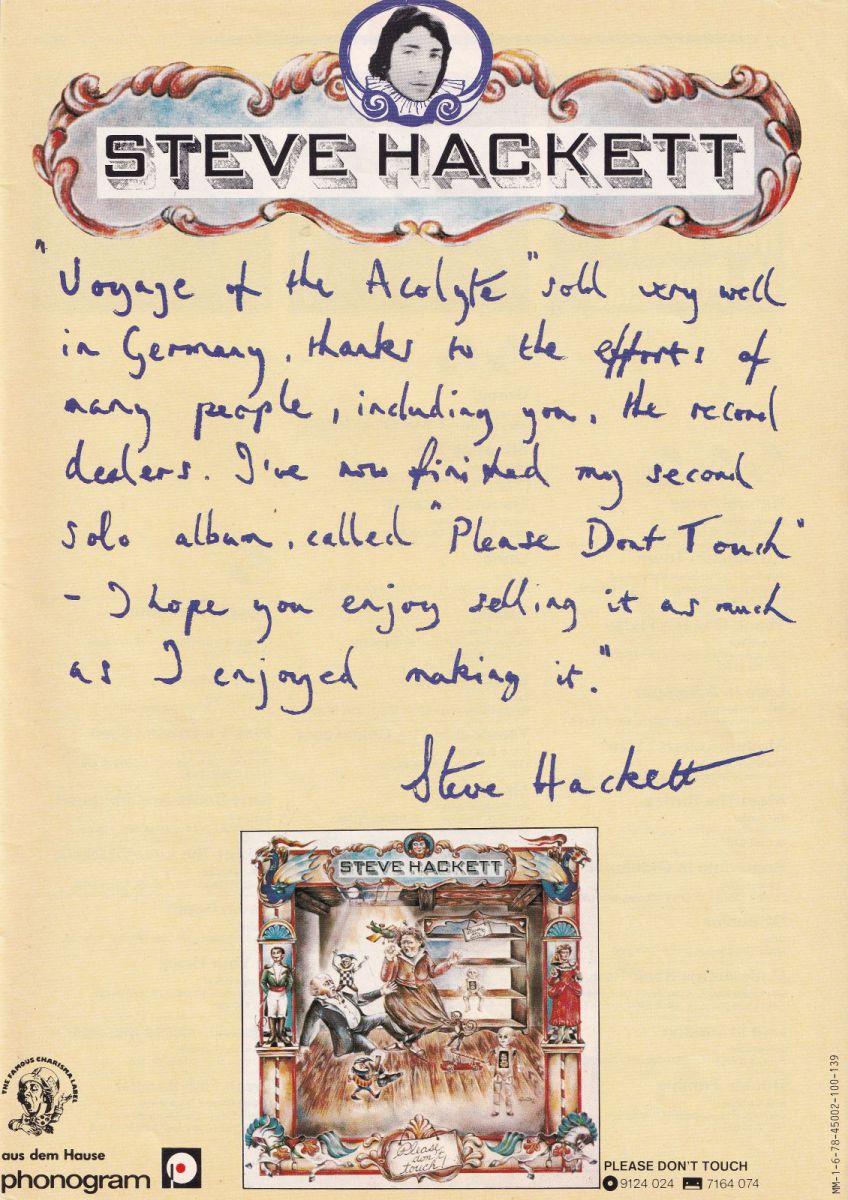 STEVE HACKETT
"Voyage of the Acolyte" sold very well
in Germany, thanks to the efforts of
many people, including you, the record
dealers. I've now finished my second
solo album, called "Please Dont Touch"
- I hope you enjoy selling it as much
as I enjoyed making it."
Steve Hackett
STEVE HACKETT
Please
don't
touch!
THE FAMOUS CHARISMA LABEL
aus dem Hause
phonogram
PLEASE DON'T TOUCH
9124 024 7164 074
MM-1-6-78-45002-100-139